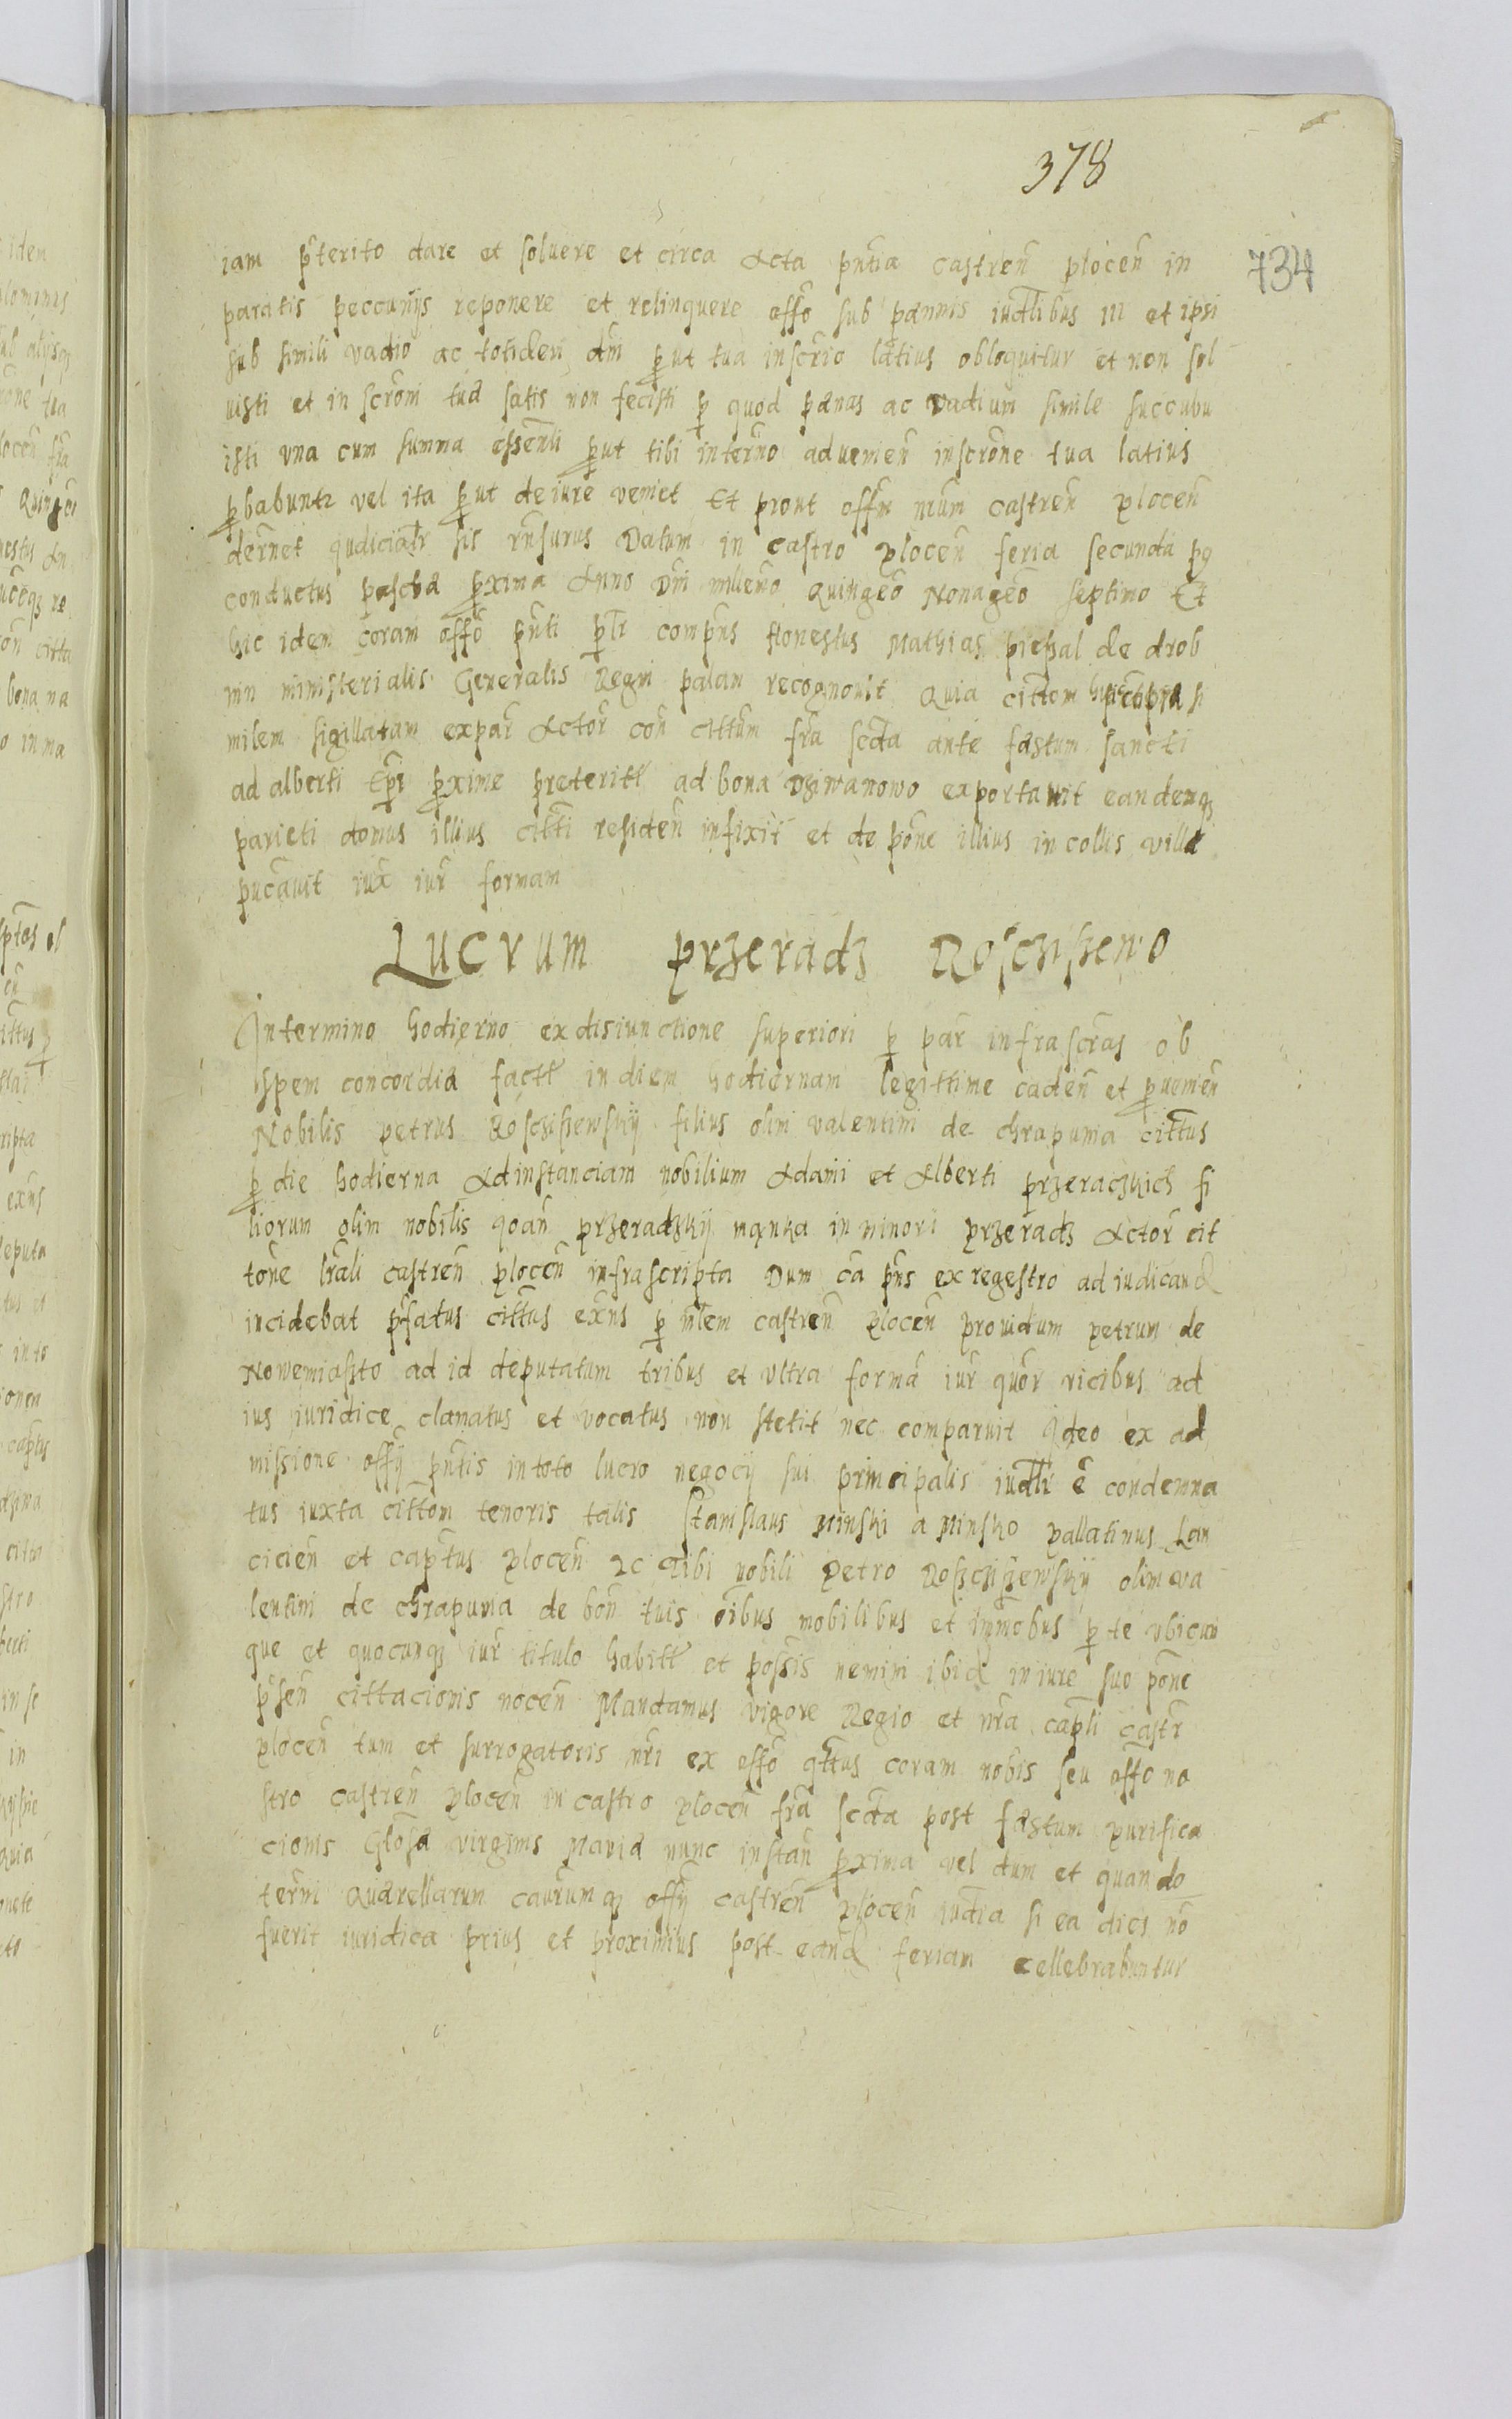 378
734
iam pterito dare et soluere et circa Acta pntia castren plocen in
paratis peccunijs reponere et relinquere offo sub paennis iudlibus III et ipsi
sub simili vadio ac totidem dm put tua inscrio latius obloquitur et non sol
uisti et in scrom tua satis non fecisti p quod paenas ac vadium simile succubu
isti vna cum summa essenli put tibi interno aduenien inscrone tua latius
pbabuntr vel ita put de iure veniet Et prout offm nrum castren plocen
dernet Judicialr sis rnsurus Datum in castro plocen feria secunda pq
conductus pascha pxima Anno Dni millemo quingeo Nonageo septimo Et
hic idem coram offo pnti plr compns Honestus Mathias piessal de drob
nin ministerialis Generalis Regni palam recognouit Quia cittom huic copia si
milem sigillatam expar Actor con cittum fra scda ante festum sancti
ad alberti pxime preteritt ad bona Dziwanowo exportauit eandemq
parieti domus illius citti residen infixit et de pone illius incollis villae
pucauit iux iur formam
Lucrum przeradz Rosciszewo
Intermino hodierno ex disiunctione superiori p par infrascras ob
spem concordiae factt in diem hodiernam legittime caden et puenien
Nobilis petrus Rosciszewskij filius olim valentini de chrapunia cittus
p die hodierna Ad instanciam nobilium Adami et Alberti przeradzkich fi
liorum olim nobilis Joan przeradzkij manka in minori przeradz Actor cit
tone lrali castren plocen infrascripta Dum ca pns ex regestro ad iudicand
incidebat pfatus cittus exns p mlem castren plocen prouidum petrum de
Nowemiasto ad id deputatum tribus et vltra forma iur quor vicibus ad
ius iuridice clamatus et vocatus non stetit nec comparuit Ideo ex ad
missione offij pntis in toto lucro negocij sui principalis iudlr e condemna
tus iuxta cittom tenoris talis Stanislaus Minski a Minsko pallatinus Lan
cicien et captus plocen 2c Tibi nobili Petro Roszciszewskij olim va
lentini de chrapunia de bon tuis oibus mobilibus et immobus p te vbicun
que et quocunq iur titulo habitt et possis nemini ibid in iure suo pone
psen cittacionis nocen Mandamus vigore Regio et nra capli castr
plocen tum et surrogatoris nri ex offo qttus coram nobis seu offo no
stro castren plocen in castro plocen fra scda post festum purifica
cionis Glosae virginis Mariae nunc instan pxima vel dum et quando
termi Quaerellarum caurumq offij castren plocen iudia si ea dies no
fuerit iuridica prius et proximius post eand feriam cellebrabuntur